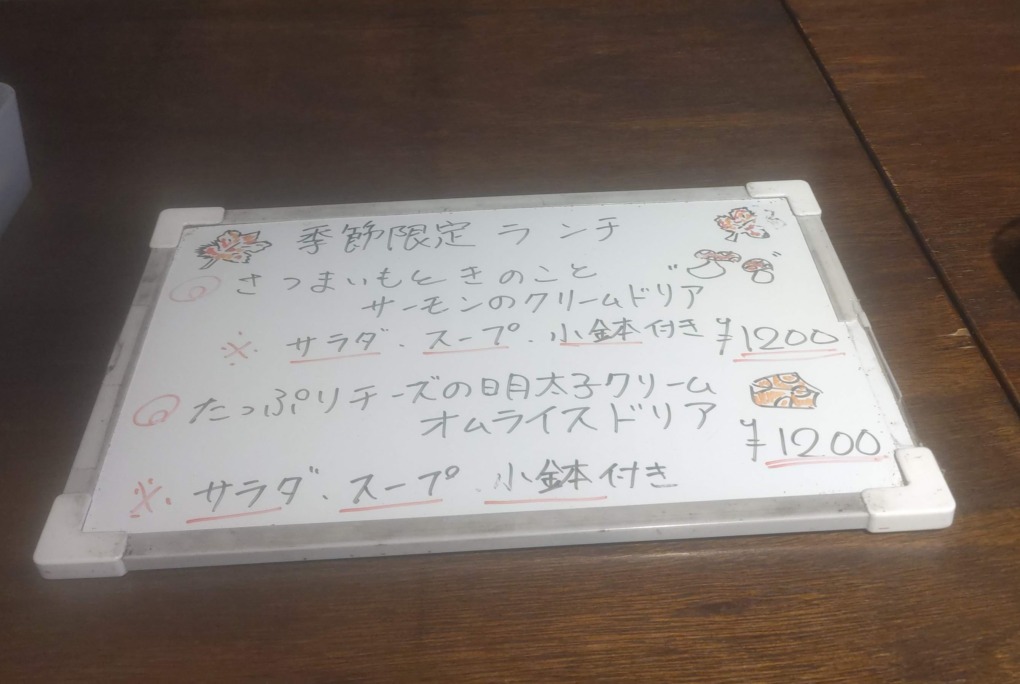 季節限定 ランチ
さつまいもときのこと
サーモンのクリームドリア
※ サラダ、スープ、小鉢付き ¥1200
たっぷりチーズの明太子クリーム
オムライスドリア
¥1200
※、サラダ、スープ、小鉢付き